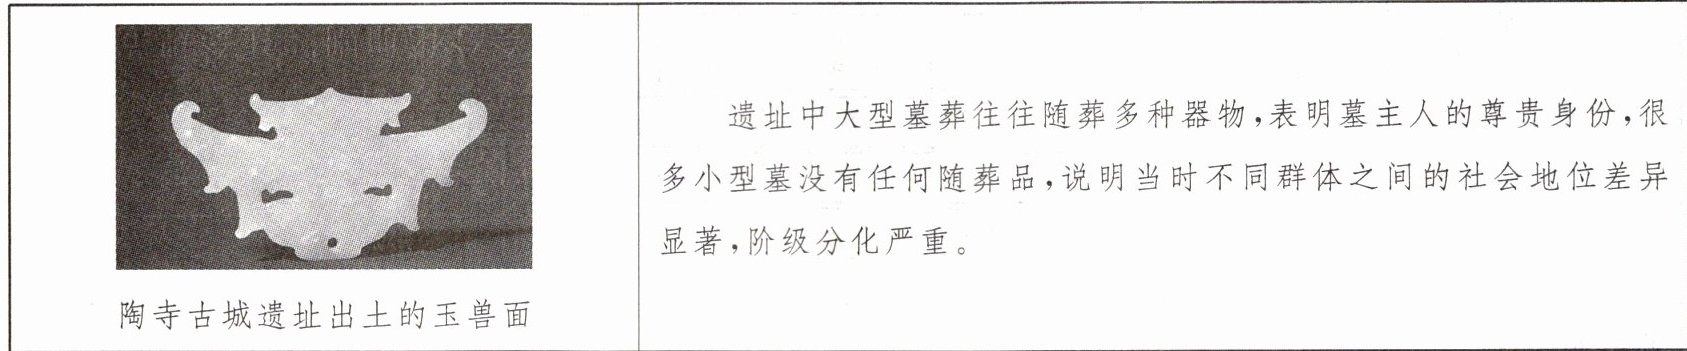 陶寺古城遗址出土的玉兽面
遗址中大型墓葬往往随葬多种器物，表明墓主人的尊贵身份，很
多小型墓没有任何随葬品，说明当时不同群体之间的社会地位差异
显著，阶级分化严重。